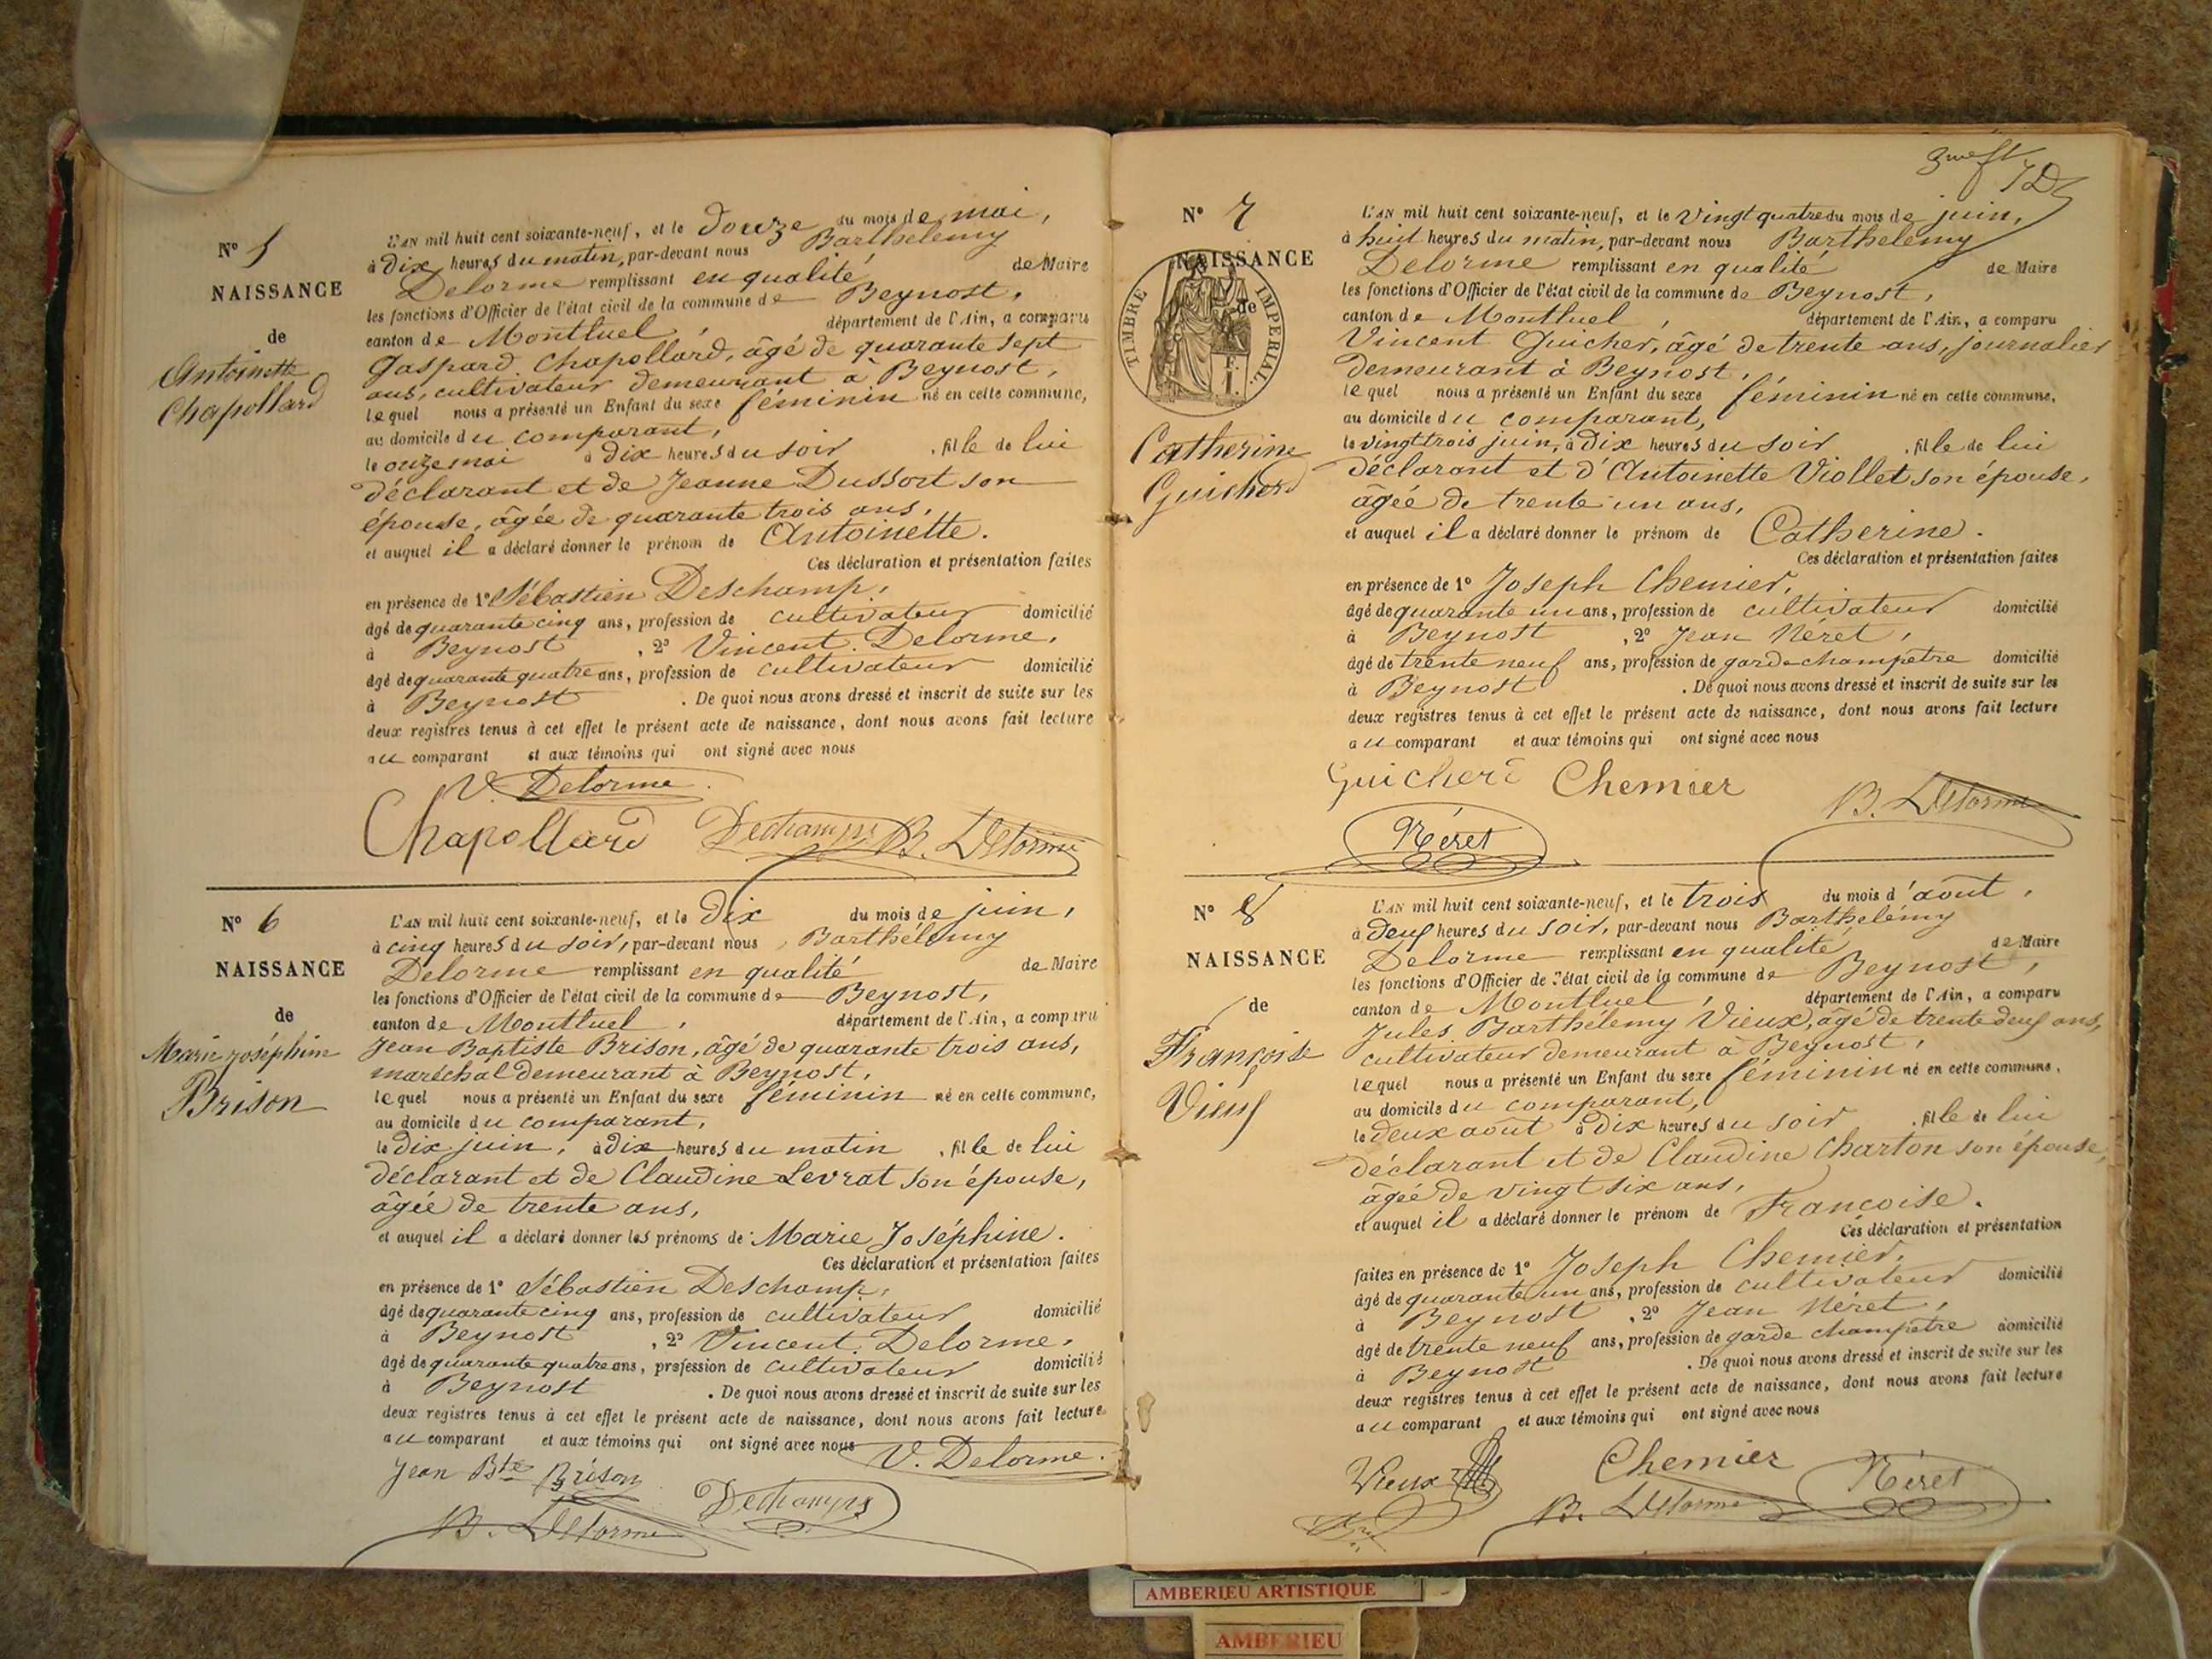 N° 5
NAISSANCE
de
Antoinette
Chapollard
L'AN mil huit cent soixante-neuf, et le douze du mois de mai,
à dix heures du matin, par-devant nous Barthélemy
Delorme remplissant en qualité de Maire
les fonctions d'Officier de l'état civil de la commune de Beynost,
canton de Montluel, département de l'Ain, a comparu
Gaspard Chapollard, âgé de quarante sept
ans, cultivateur demeurant à Beynost,
lequel nous a présenté un Enfant du sexe féminin né en cette commune,
au domicile du comparant,
le onze mai à dix heures du soir, fille de lui
déclarant et de Jeanne Dussort son
épouse, âgée de quarante trois ans,
et auquel il a déclaré donner le prénom de Antoinette.
Ces déclaration et présentation faites
en présence de 1° Sébastien Deschamp,
âgé de quarante cinq ans, profession de cultivateur domicilié
à Beynost, 2° Vincent Delorme,
âgé de quarante quatre ans, profession de cultivateur domicilié
à Beynost. De quoi nous avons dressé et inscrit de suite sur les
deux registres tenus à cet effet le présent acte de naissance, dont nous avons fait lecture
au comparant et aux témoins qui ont signé avec nous
V. Delorme
Chapollard Dechamps B. Delorme
N° 6
NAISSANCE
de
Marie Joséphine
Brison
L'AN mil huit cent soixante-neuf, et le dix du mois de juin,
à cinq heures du soir, par-devant nous Barthélemy
Delorme remplissant en qualité de Maire
les fonctions d'Officier de l'état civil de la commune de Beynost,
canton de Montluel, département de l'Ain, a comparu
Jean Baptiste Brison, âgé de quarante trois ans,
maréchal demeurant à Beynost,
lequel nous a présenté un Enfant du sexe féminin né en cette commune,
au domicile du comparant,
le dix juin, à dix heures du matin, fille de lui
déclarant et de Claudine Levrat son épouse,
âgée de trente ans,
et auquel il a déclaré donner les prénoms de Marie Joséphine.
Ces déclaration et présentation faites
en présence de 1° Sébastien Deschamp,
âgé de quarante cinq ans, profession de cultivateur domicilié
à Beynost, 2° Vincent Delorme,
âgé de quarante quatre ans, profession de cultivateur domicilié
à Beynost. De quoi nous avons dressé et inscrit de suite sur les
deux registres tenus à cet effet le présent acte de naissance, dont nous avons fait lecture
au comparant et aux témoins qui ont signé avec nous
V. Delorme.
Jean Bte Brison
Dechamps
B. Delorme
3me ft
N° 7
NAISSANCE
de
TIMBRE IMPERIAL
Catherine
Guicherd
L'AN mil huit cent soixante-neuf, et le vingt quatre du mois de juin,
à huit heures du matin, par-devant nous Barthelemy
Delorme remplissant en qualité de Maire
les fonctions d'Officier de l'état civil de la commune de Beynost,
canton de Montluel, département de l'Ain, a comparu
Vincent Guicher, âgé de trente ans, journalier
demeurant à Beynost,
lequel nous a présenté un Enfant du sexe féminin né en cette commune,
au domicile du comparant,
le vingt trois juin, à dix heures du soir, fille de lui
déclarant et d'Antoinette Viollet son épouse,
âgée de trente un ans,
et auquel il a déclaré donner le prénom de Catherine.
Ces déclaration et présentation faites
en présence de 1° Joseph Chemier,
âgé de quarante un ans, profession de cultivateur domicilié
à Beynost, 2° Jean Néret,
âgé de trente neuf ans, profession de garde champêtre domicilié
à Beynost. De quoi nous avons dressé et inscrit de suite sur les
deux registres tenus à cet effet le présent acte de naissance, dont nous avons fait lecture
au comparant et aux témoins qui ont signé avec nous
Guicherd Chemier B. Delorme
Néret
N° 8
NAISSANCE
de
Françoise
Vieux
L'AN mil huit cent soixante-neuf, et le trois du mois d'août,
à deux heures du soir, par-devant nous Barthélémy
Delorme remplissant en qualité de Maire
les fonctions d'Officier de l'état civil de la commune de Beynost,
canton de Montluel, département de l'Ain, a comparu
Jules Barthélemy Vieux, âgé de trente deux ans,
cultivateur demeurant à Beynost,
lequel nous a présenté un Enfant du sexe féminin né en cette commune,
au domicile du comparant,
le deux août à dix heures du soir, fille de lui
déclarant et de Claudine Charton son épouse,
âgée de vingt six ans,
et auquel il a déclaré donner le prénom de Francoise.
Ces déclaration et présentation
faites en présence de 1° Joseph Chemier,
âgé de quarante un ans, profession de cultivateur domicilié
à Beynost, 2° Jean Néret,
âgé de trente neuf ans, profession de garde champêtre domicilié
à Beynost. De quoi nous avons dressé et inscrit de suite sur les
deux registres tenus à cet effet le présent acte de naissance, dont nous avons fait lecture
au comparant et aux témoins qui ont signé avec nous
Vieux Chemier Néret
B. Delorme
AMBERIEU ARTISTIQUE
AMBERIEU